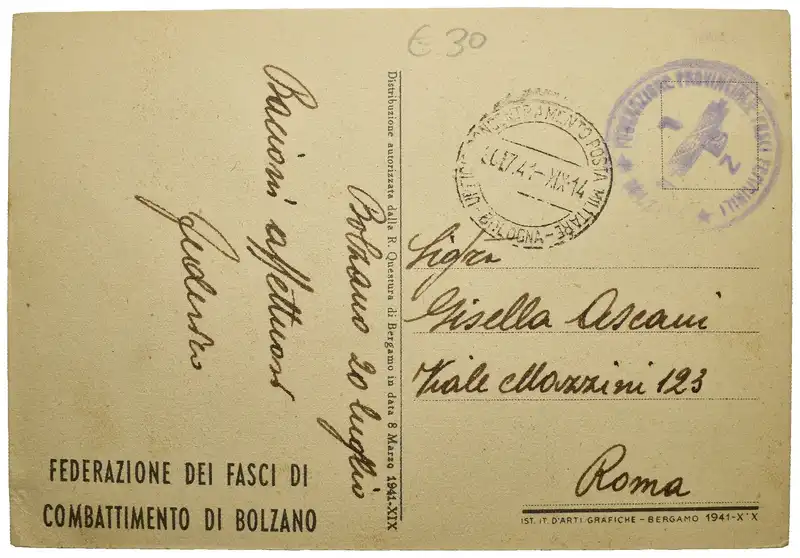 €30
Bolzano 20 luglio
Bacioni affettuosi
Distribuzione autorizzata dalla R. Questura di Bergamo in data 8 Marzo 1941-XIX
FEDERAZIONE DEI FASCI DI
COMBATTIMENTO DI BOLZANO
UFFICIO CONCENTRAMENTO POSTA MILITARE
BOLOGNA
7.41-XIX 14
FEDERAZIONE PROVINCIALE FASCI FEMMINILI
Sig.ra
Gisella Ascani
Viale Mazzini 123
Roma
IST. IT. D'ARTI GRAFICHE - BERGAMO 1941-XIX